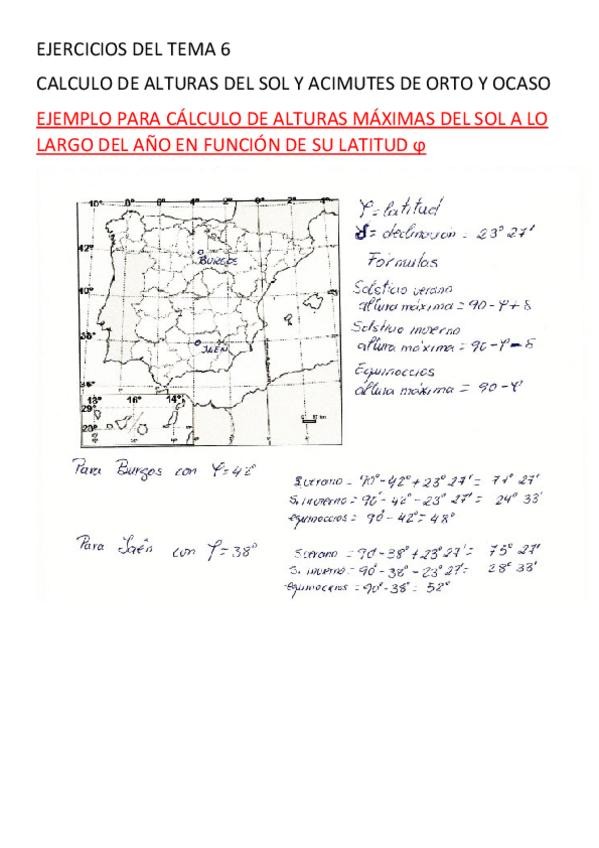 EJERCICIOS DEL TEMA 6
CALCULO DE ALTURAS DEL SOL Y ACIMUTES DE ORTO Y OCASO
EJEMPLO PARA CÁLCULO DE ALTURAS MÁXIMAS DEL SOL A LO
LARGO DEL AÑO EN FUNCIÓN DE SU LATITUD φ
10° 8° 6° 4° 2° 0° 2° 4°
42°
BURGOS
40°
38°
JAÉN
36°
18° 16° 14°
29°
28°
φ = latitud
δ = declinación = 23° 27'
Fórmulas
Solsticio verano
altura máxima = 90 - φ + δ
Solsticio invierno
altura máxima = 90 - φ - δ
Equinoccios
altura máxima = 90 - φ
Para Burgos con φ = 42°
S. verano = 90° - 42° + 23° 27' = 71° 27'
S. invierno = 90° - 42° - 23° 27' = 24° 33'
equinoccios = 90° - 42° = 48°
Para Jaén con φ = 38°
S. verano = 90° - 38° + 23° 27' = 75° 27'
S. invierno = 90° - 38° - 23° 27' = 28° 33'
equinoccios = 90° - 38° = 52°